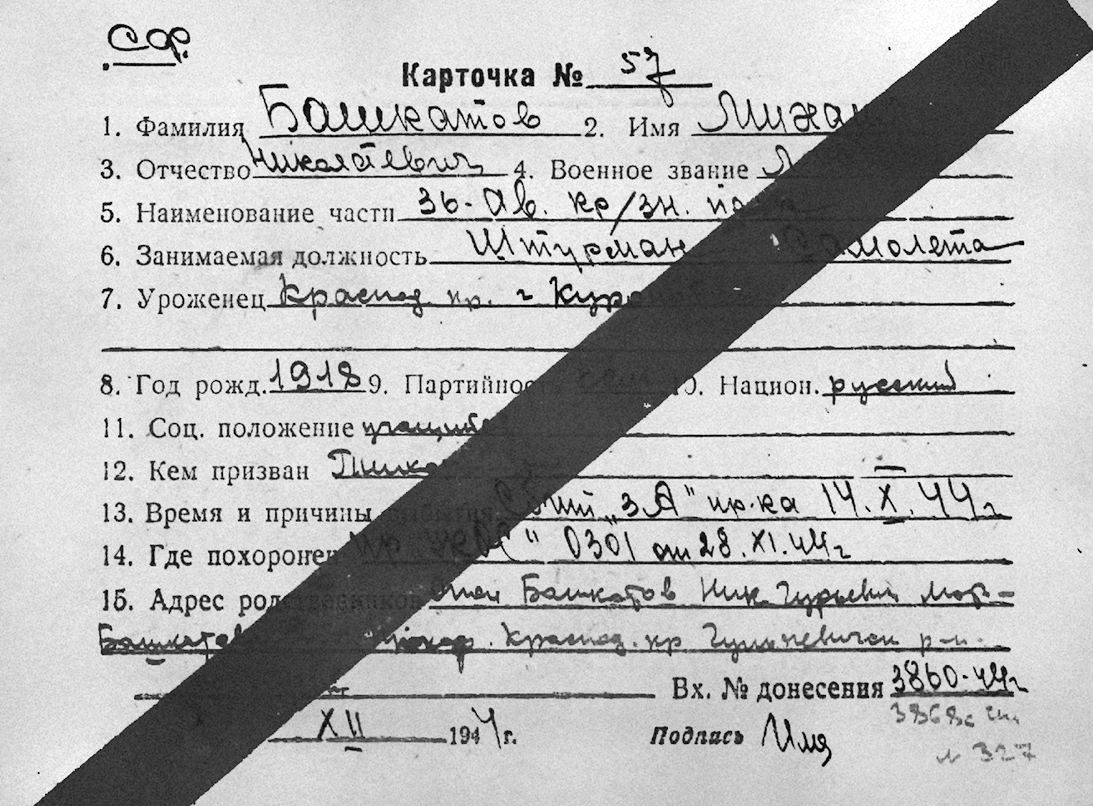 СФ.
Карточка № 57
1. Фамилия Башкатов 2. Имя Михаи
3. Отчество Николаевич 4. Военное звание
5. Наименование части 36-Ав. кр/зн. полк
6. Занимаемая должность Штурман Самолета
7. Уроженец Краснод. кр. г
8. Год рожд. 1918 9. Партийност 10. Национ. русский
11. Соц. положение учащийся
12. Кем призван
13. Время и причины выбытия „ЗА" пр-ка 14.X.44г
14. Где похоронен пр. 0301 от 28.XI.44г
15. Адрес родственников Отец Башкатов Ник Гурьевич мать-
Краснод. кр Гулькевичск р-н.
Вх. № донесения 3860-44г
XII 1944г. Подпись
3868с
327